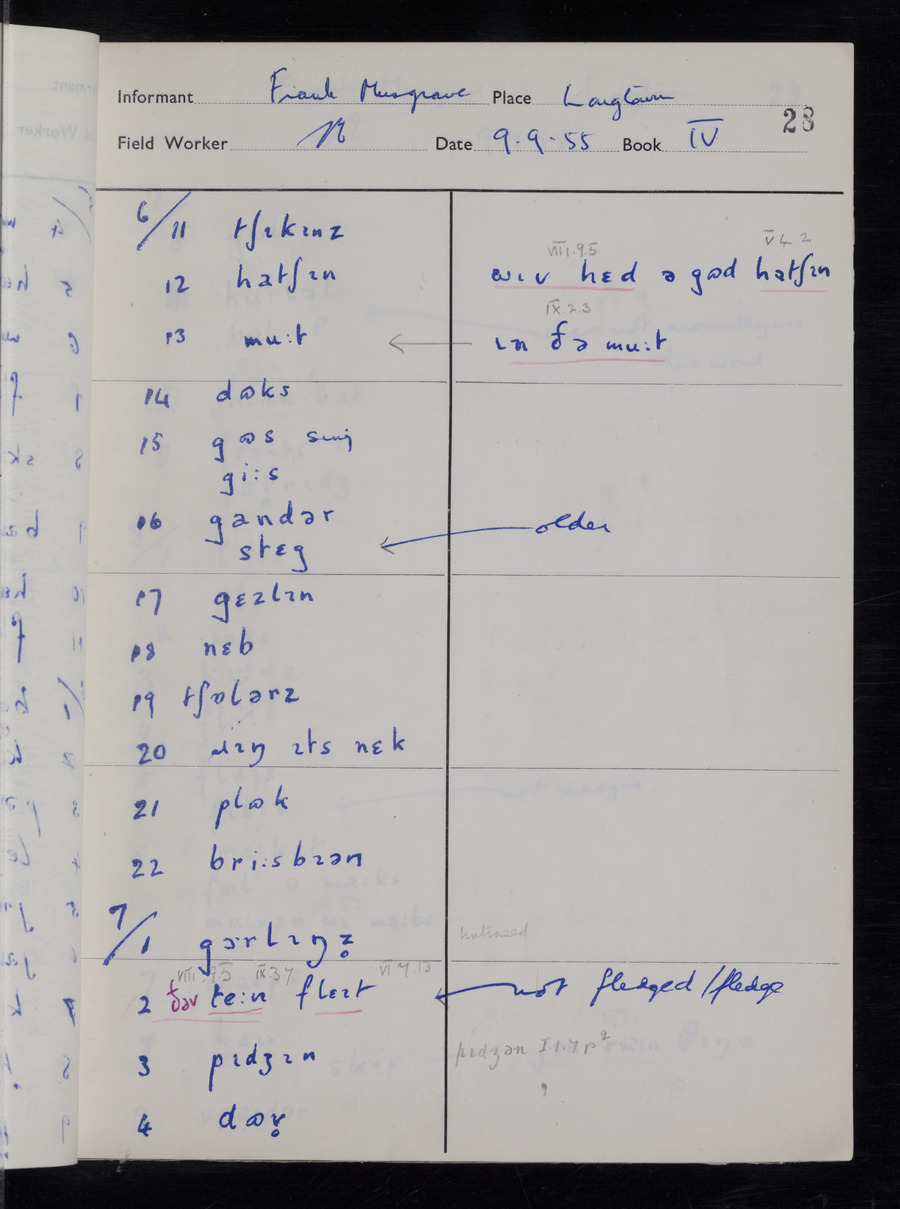 Informant Frank Musgrave Place Longtown
28
Field Worker Date 9.9.55 Book IV
6/11 tʃɪkɪnz
12 hatʃɪn
VIII.9.5 V.4.2
wɪv hɛd ə gɷd hatʃɪn
13 mu:t ←
IX.2.3
ɪn ðə mu:t
14 dɷks
15 gɷs sing
gi:s
16 gandər
stɛg ← older
17 gɛzlɪn
18 nɛb
19 tʃɒlərz
20 ɹɪŋ ɪts nɛk
21 plɷk
22 bri:sbɪən
7/1 gərlɪŋz̥
VIII.9.5 IX.3.7 VI.7.13
2 ðəv te:n flɛɪt ← not fledged/fledge
3 pɪdʒɪn
pɪdʒən I.1.7 r²
4 dɷv̥